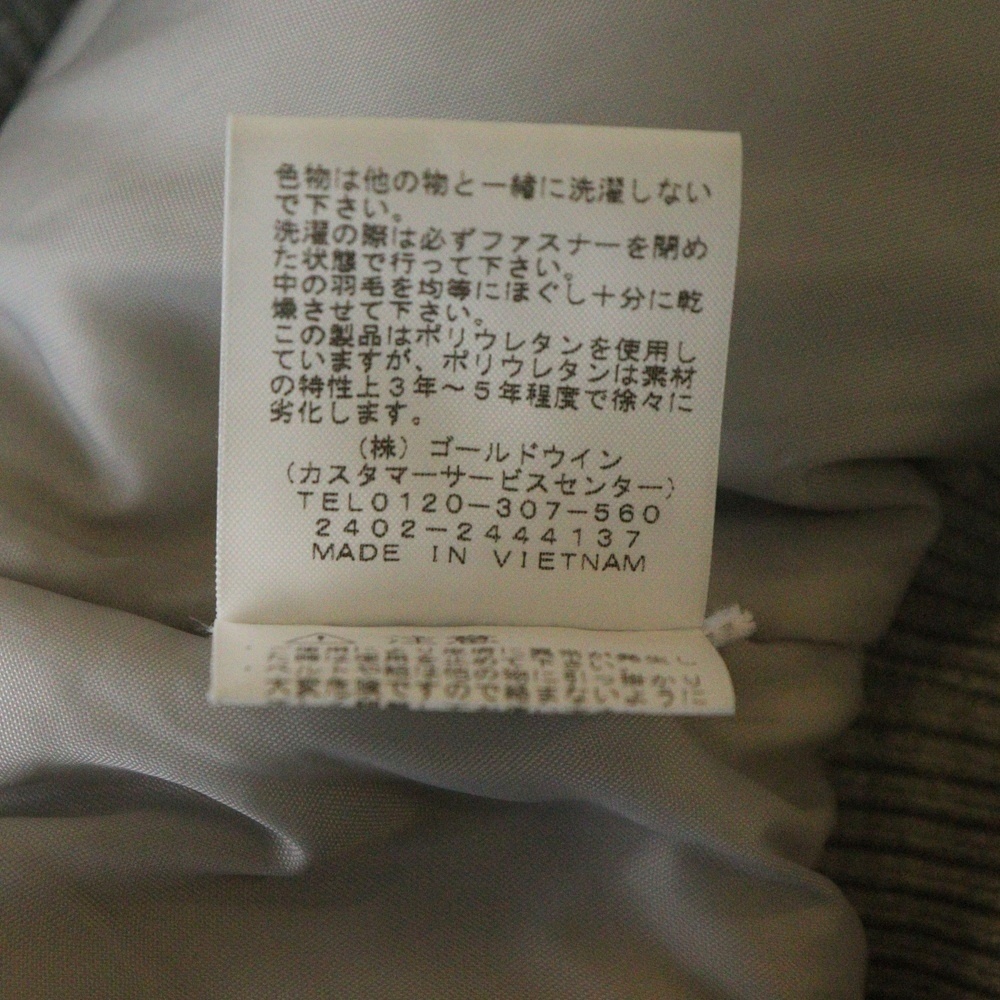 色物は他の物と一緒に洗濯しない
で下さい。
洗濯の際は必ずファスナーを閉め
た状態で行って下さい。
中の羽毛を均等にほぐし十分に乾
燥させて下さい。
この製品はポリウレタンを使用し
ていますが、ポリウレタンは素材
の特性上3年～5年程度で徐々に
劣化します。
(株)ゴールドウイン
(カスタマーサービスセンター)
TEL0120-307-560
2402-2444137
MADE IN VIETNAM
注意